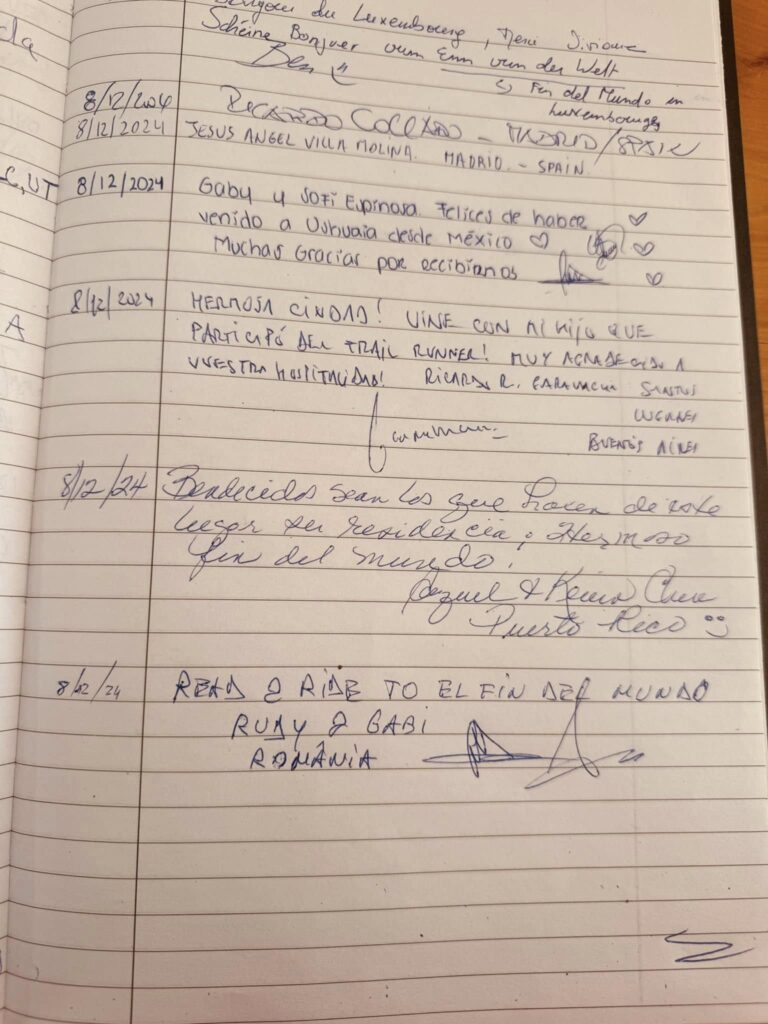 du Luxembourg, Merci
Schéine Bonjour vum Enn vun der Welt
Ben
↳ Fin del Mundo en
Luxembourgës
8/12/2024 RICARDO COLLADO - MADRID/SPAIN
8/12/2024 JESUS ANGEL VILLA MOLINA. MADRID. - SPAIN.
C, UT
8/12/2024 Gaby y Sofi Espinosa. Felices de haber ♡
venido a Ushuaia desde México ♡ ♡
Muchas Gracias por recibirnos ♡
8/12/2024 HERMOSA CIUDAD! VINE CON MI HIJO QUE
A
PARTICIPÓ DEL TRAIL RUNNER! MUY AGRADECIDO A
VUESTRA HOSPITALIDAD! RICARDO R.
BUENOS AIRES
8/12/24 Bendecidos sean los que hacen de este
lugar su residencia, Hermoso
fin del mundo.
& Keila
Puerto Rico
8/12/24 READ & RIDE TO EL FIN DEL MUNDO
RUDY & GABI
ROMÂNIA